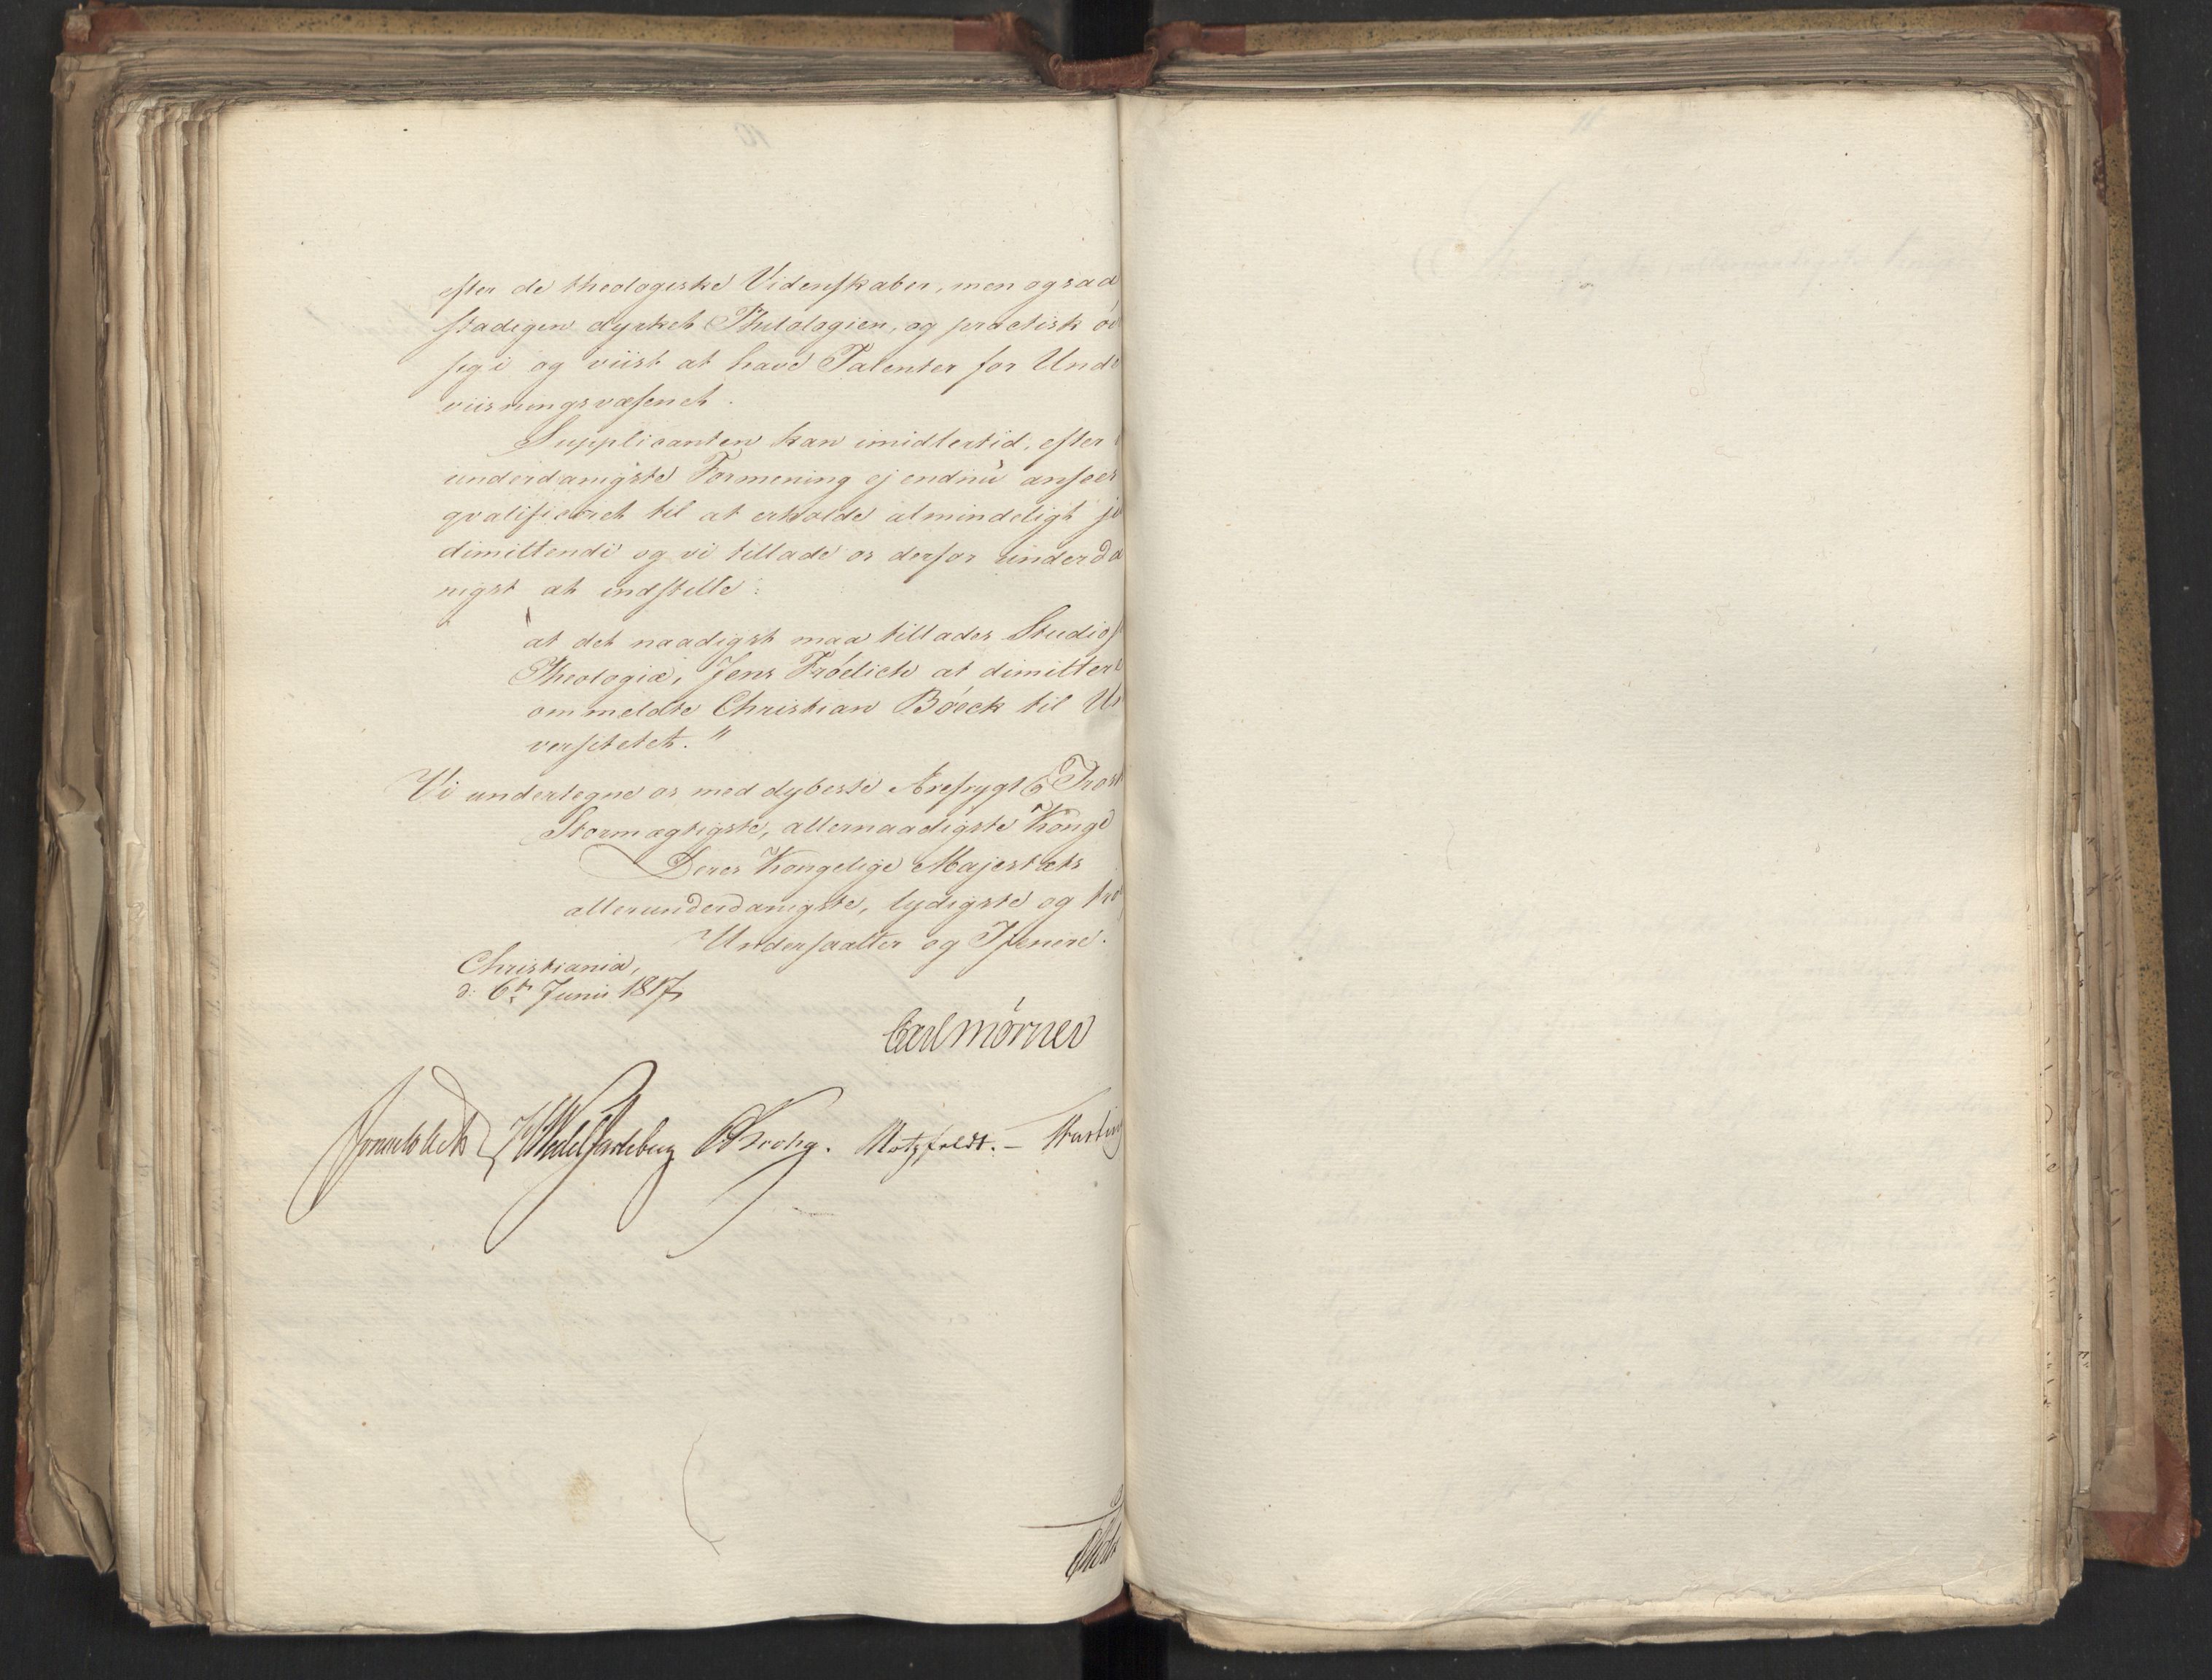 efter de theologiske Videnskaber, men ogsaa
stadigen dyrket Philologien, og practisk
sig i og viist at have Talenter for Und
viisningsvæsenet.
Supplicanten kan imidlertid, efter
underdanigste Formening ej endnu ansees
qvalificeret til at erholde almindeligt j
dimittendi og vi tillade os derfor underda
nigst at indstille:
"at det naadigst maa tillades Studios
Theologiæ, Jens Frölich at dimittere
ommeldte Christian Böeck til Un
versitetet."
Vi undertegne os med dybeste Ærefrygt
Stormægtigste, allernaadigste Konge
Deres Kongelige Majestæts
allerunderdanigste, lydigste og tro
Undersaatter og Tjenere.
Christiania,
d: 6te Junii 1817
Carl Mörner
Sommerhielm HWedel Jarlsberg Krohg. Motzfeldt.